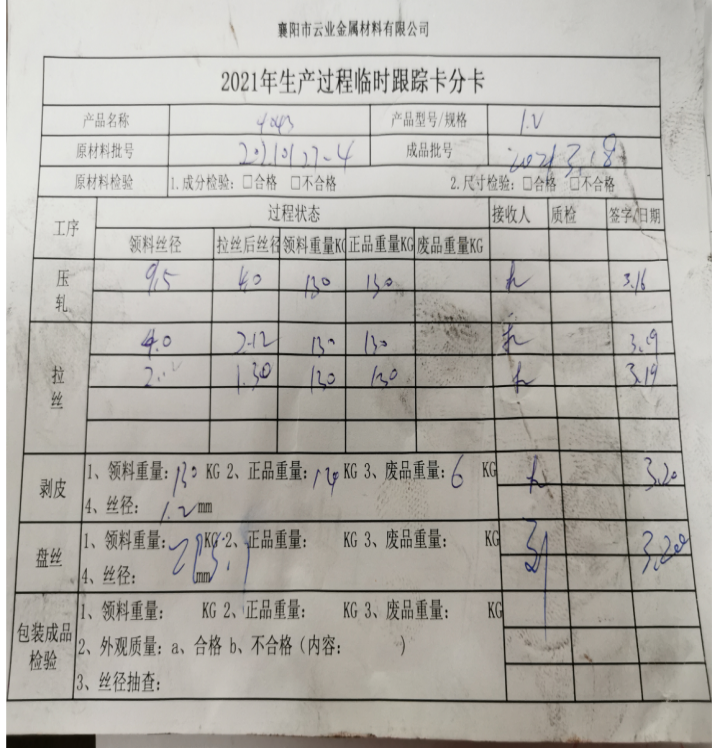 襄阳市云业金属材料有限公司
2021年生产过程临时跟踪卡分卡
产品名称 4043 产品型号/规格 1.2
原材料批号 成品批号 2021 3.18
原材料检验 1.成分检验：□合格 □不合格 2.尺寸检验：□合格 □不合格
工序 过程状态 接收人 质检 签字/日期
领料丝径 拉丝后丝径 领料重量KG 正品重量KG 废品重量KG
压轧 9.5 4.0 130 130 3.16
拉丝 4.0 2.12 130 130 3.19
1.30 130 130 3.19
剥皮 1、领料重量：130 KG 2、正品重量：124 KG 3、废品重量：6 KG 3.20
4、丝径：1.2 mm
盘丝 1、领料重量： KG 2、正品重量： KG 3、废品重量： KG 3.20
4、丝径： mm
包装成品检验 1、领料重量： KG 2、正品重量： KG 3、废品重量： KG
2、外观质量：a、合格 b、不合格（内容： ）
3、丝径抽查：